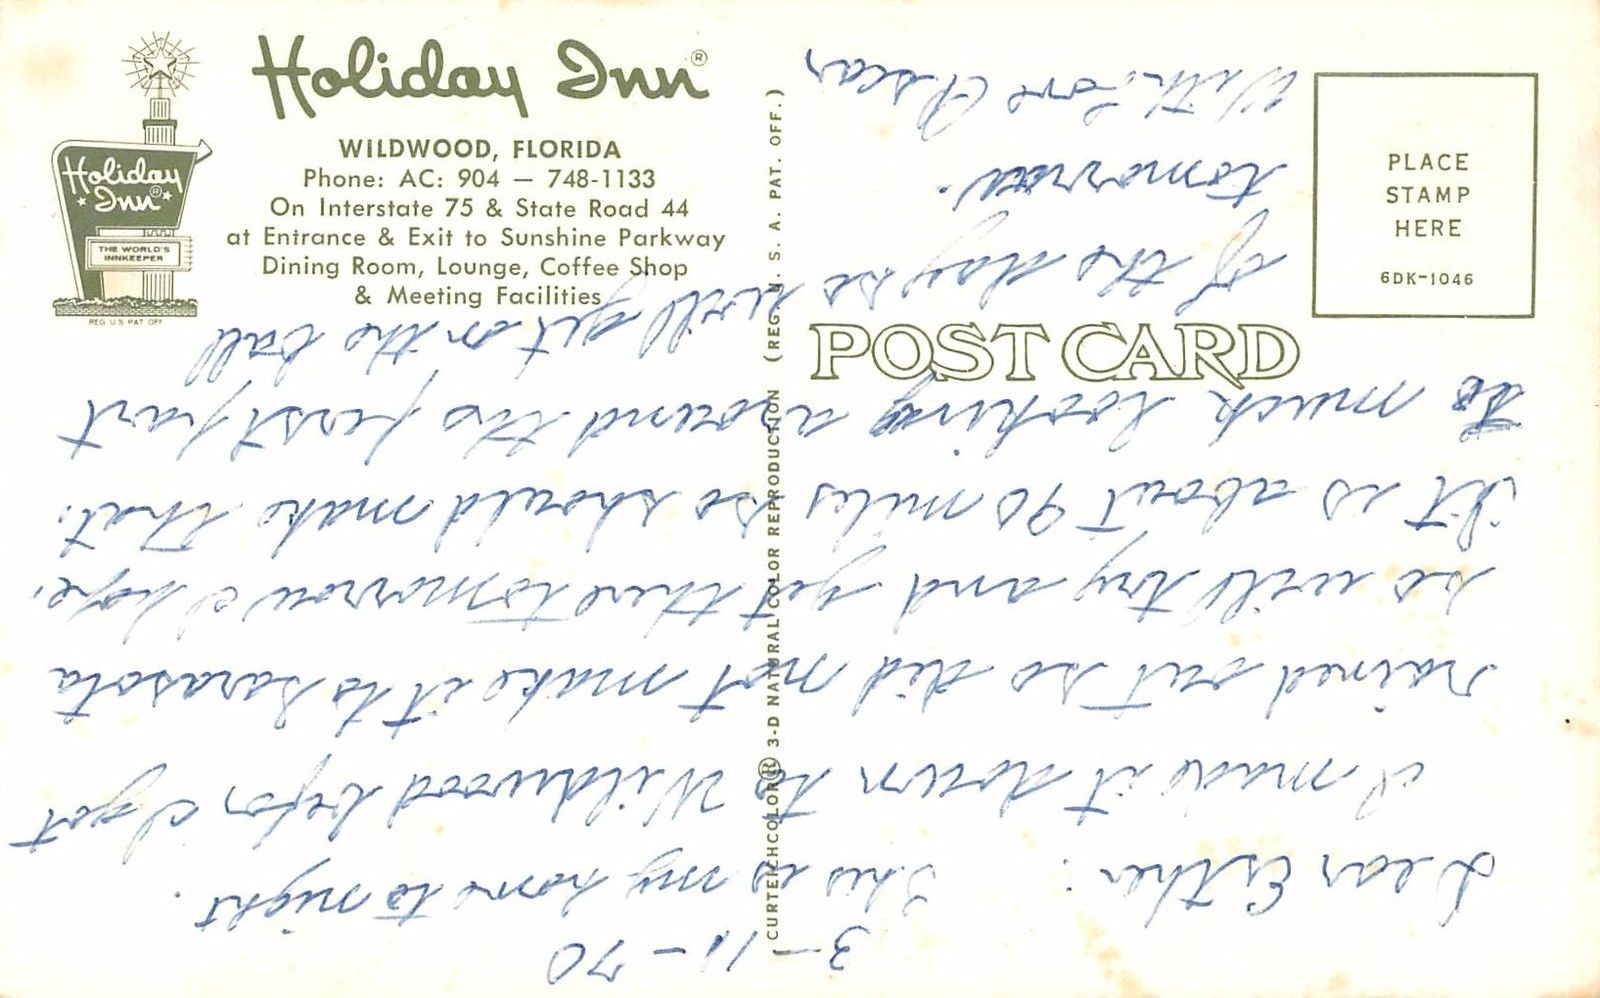 Holiday Inn®
WILDWOOD, FLORIDA
Phone: AC: 904 — 748-1133
On Interstate 75 & State Road 44
at Entrance & Exit to Sunshine Parkway
Dining Room, Lounge, Coffee Shop
& Meeting Facilities
Holiday
Inn®
THE WORLD'S
INNKEEPER
REG. U.S. PAT. OFF.
CURTEICHCOLOR® 3-D NATURAL COLOR REPRODUCTION (REG. U. S. A. PAT. OFF.)
POST CARD
PLACE
STAMP
HERE
6DK-1046
3-11-70
Dear Esther: This is my home to night.
I made it down to Wildwood befor I got
rained out so did not make it to Sarasota
so will try and get there tomorrow I hope.
It is about 90 miles so should make that.
to much looking around the first part
of the day so will get on the ball
tomorrow.
With Love Oscar